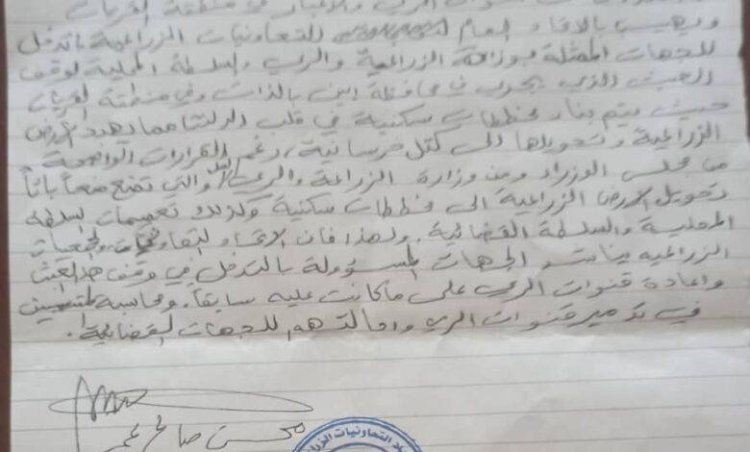 في منطقة القريات
ويهيب بالاتحاد العام للتعاونيات الزراعية بتدخل
للجهات الممثلة بوزارة الزراعية والري والسلطة المحلية لوقف
العبث الذي يجري في محافظة ابين بالذات وفي منطقة القريات
حيث يتم بناء مخططات سكنية في قلب الدلتا مما يهدد الارض
الزراعية وتحويلها الى كتل خرسانية، رغم القرارات الواضحة
من مجلس الوزراء ومن وزارة الزراعة والري والتي تمنع منعاً باتاً
تحويل الارض الزراعية الى مخططات سكنية وكذلك تعميمات السلطة
المحلية والسلطة القضائية. ولهذا فان الاتحاد والتعاونيات والجمعيات
الزراعيه يناشد الجهات المسؤولة بالتدخل في وقف هذا العبث
واعادة قنوات الري على ماكانت عليه سابقاً. ومحاسبة المتسببين
في تدمير قنوات الري واحالتهم للجهات القضائية.
محسن صالح
اد التعاونيات الزرا